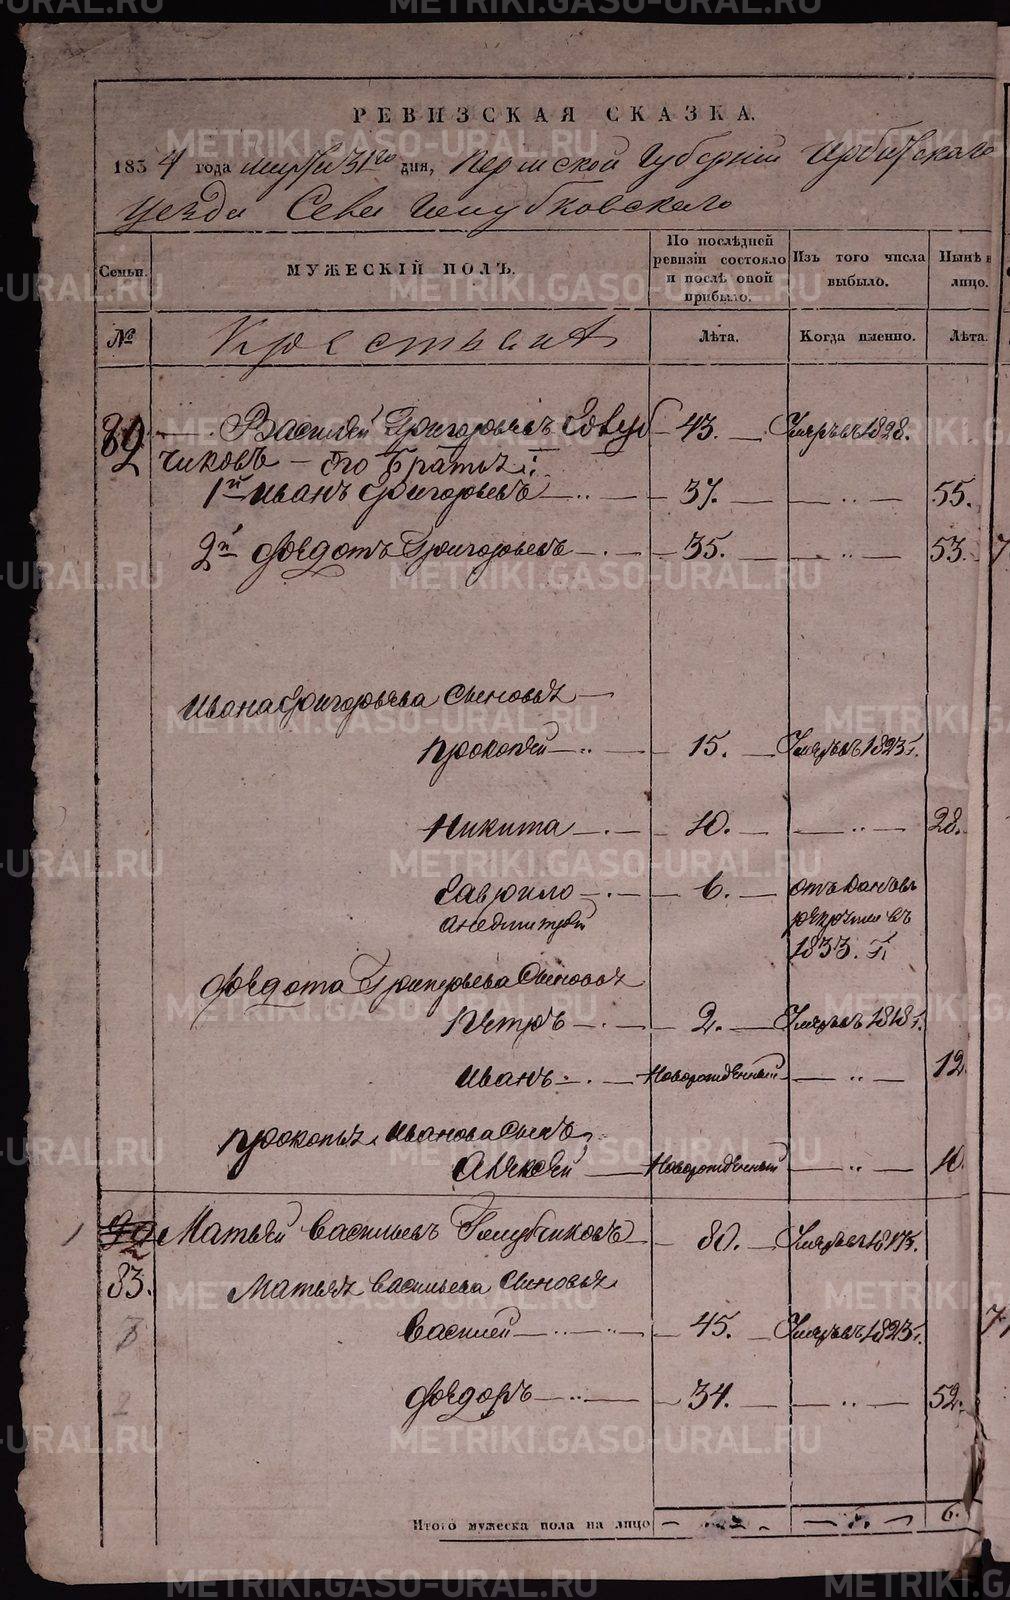 РЕВИЗСКАЯ СКАЗКА.
1834 года марта 31го дня, Пермской Губернии Ирбитскаго
уезда Села Голубковскаго
Семьи. МУЖЕСКІЙ ПОЛЪ. По послѣдней ревизіи состояло и послѣ оной прибыло. Изъ того числа выбыло. Нынѣ на лицо.
№ Крестьянъ Лѣта. Когда именно. Лѣта.
82 Василей Григорьевъ Голуб 43. Умеръ въ 1828.
чиковъ – Его Братья:
1й Иванъ Григорьевъ 37. 55.
2й Федотъ Григорьевъ 35. 53.
Ивана Григорьева Сыновья
Прокопей 15. Умеръ въ 1823 г.
Никита 10. 28.
Гаврило 6. отъ данъ въ
а не дмитрей рекруты въ
1833. г.
Федота Григорьева Сыновья
Петръ 2. Умеръ въ 1818 г.
Иванъ Новорожденный 12.
Прокопья Иванова Сынъ
Алексей Новорожденный 10.
Матвей Васильевъ Голубчиковъ 80. Умеръ въ 1817 г.
83. Матвея Васильева Сыновья
Василей 45. Умеръ въ 1823 г.
Федоръ 34. 52.
Итого мужеска пола на лицо 6.
METRIKI.GASO-URAL.RU